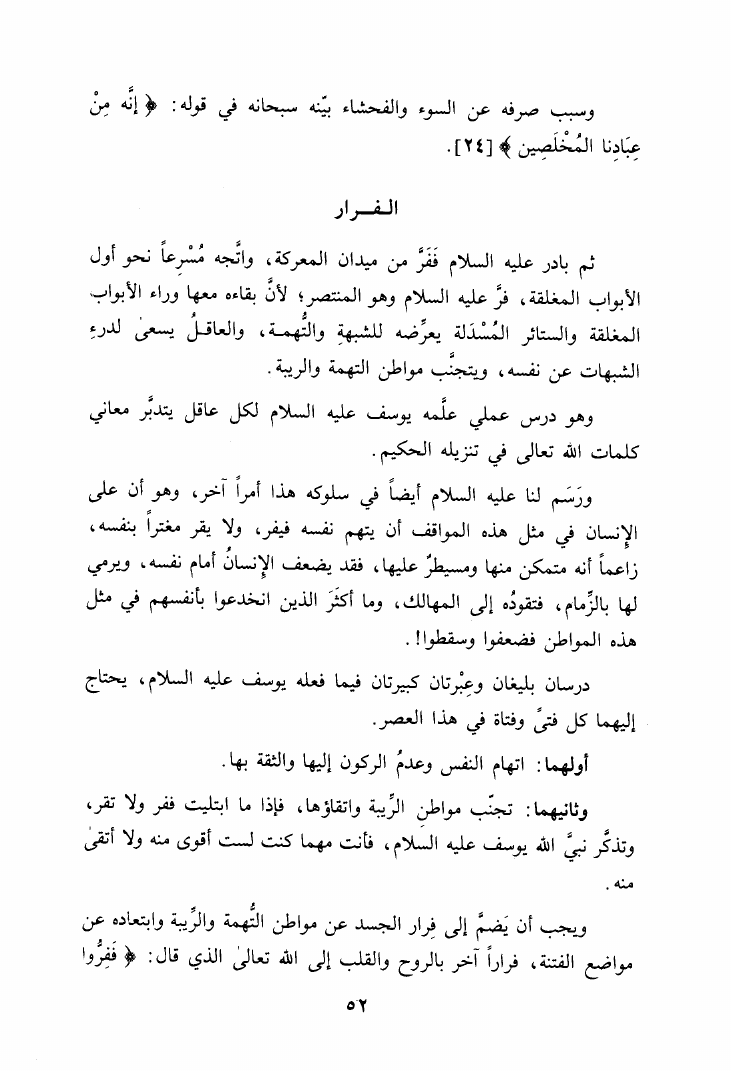 وسبب صرفه عن السوء والفحشاء بيّنه سبحانه في قوله: ﴿ إنَّه مِنْ
عِبَادِنا المُخْلَصِين ﴾ [٢٤].
الفـرار
ثم بادر عليه السلام فَفَرَّ من ميدان المعركة، واتَّجه مُسْرعاً نحو أول
الأبواب المغلقة، فرَّ عليه السلام وهو المنتصر؛ لأنَّ بقاءه معها وراء الأبواب
المغلقة والستائر المُسْدَلة يعرِّضه للشبهةِ والتُّهمـة، والعاقـلُ يسعىٰ لدرءِ
الشبهات عن نفسه، ويتجنَّب مواطن التهمة والريبة.
وهو درس عملي علَّمه يوسف عليه السلام لكل عاقل يتدبَّر معاني
كلمات الله تعالى في تنزيله الحكيم.
ورَسَم لنا عليه السلام أيضاً في سلوكه هذا أمراً آخر، وهو أن على
الإنسان في مثل هذه المواقف أن يتهم نفسه فيفر، ولا يقر مغتراً بنفسه،
زاعماً أنه متمكن منها ومسيطرٌ عليها، فقد يضعف الإنسانُ أمام نفسه، ويرمي
لها بالزِّمام، فتقودُه إلى المهالك، وما أكثَرَ الذين انخدعوا بأنفسهم في مثل
هذه المواطن فضعفوا وسقطوا!.
درسان بليغان وعِبْرتان كبيرتان فيما فعله يوسف عليه السلام، يحتاج
إليهما كل فتىً وفتاة في هذا العصر.
أولهما: اتهام النفس وعدمُ الركون إليها والثقة بها.
وثانيهما: تجنّب مواطنِ الرِّيبة واتقاؤها، فإذا ما ابتليت ففر ولا تقر،
وتذكَّر نبيَّ الله يوسف عليه السلام، فأنت مهما كنت لست أقوى منه ولا أتقىٰ
منه.
ويجب أن يَضمَّ إلى فِرار الجسد عن مواطن التُّهمة والرِّيبة وابتعاده عن
مواضع الفتنة، فراراً آخر بالروح والقلب إلى الله تعالىٰ الذي قال: ﴿ فَفِرُّوا
٥٢